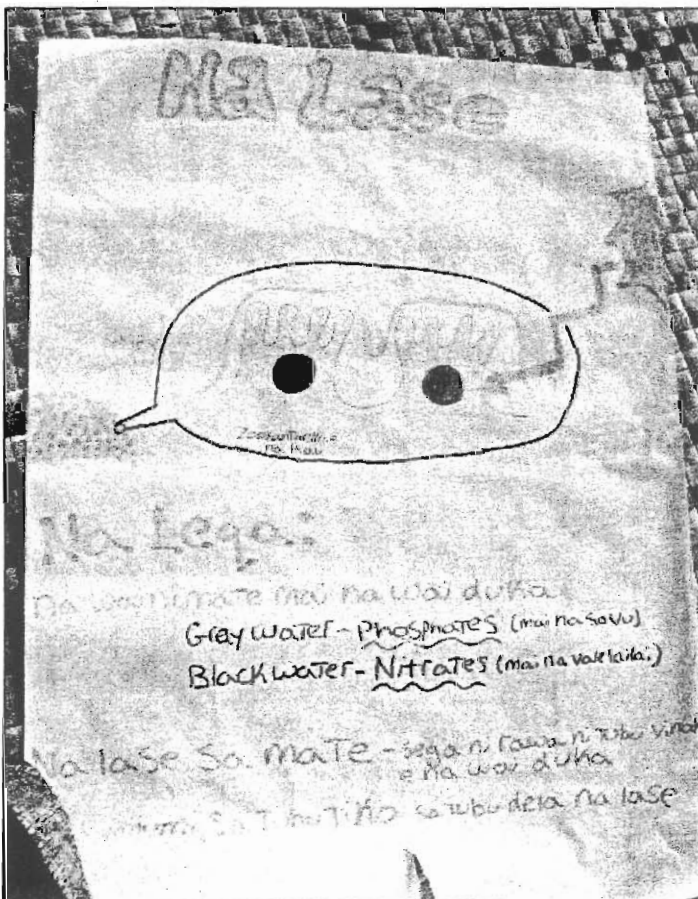 Na Lase
Zooxanthellae
na kau
Na Leqa:
na wainimate mai na wai duka
Gray water - Phosphates (mai na sovu)
Black water - Nitrates (mai na vale lailai)
Na lase sa mate - sega ni rawa ni tubu vinaka
e na wai duka
sa tubu tiko sa tubu dela na lase